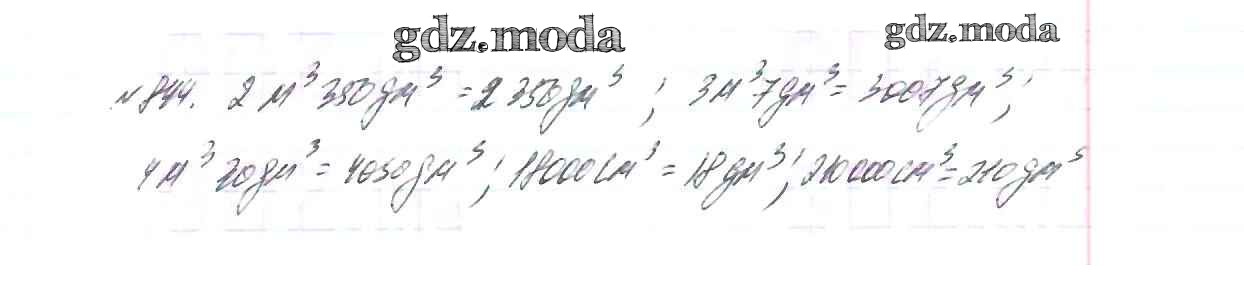 gdz.moda gdz.moda
№844. 2 м³ 350 дм³ = 2 350 дм³ ; 3м³ 7дм³ = 3007 дм³ ;
4м³ 30 дм³ = 4030 дм³ ; 18000 см³ = 18 дм³ ; 210000 см³ = 210 дм³